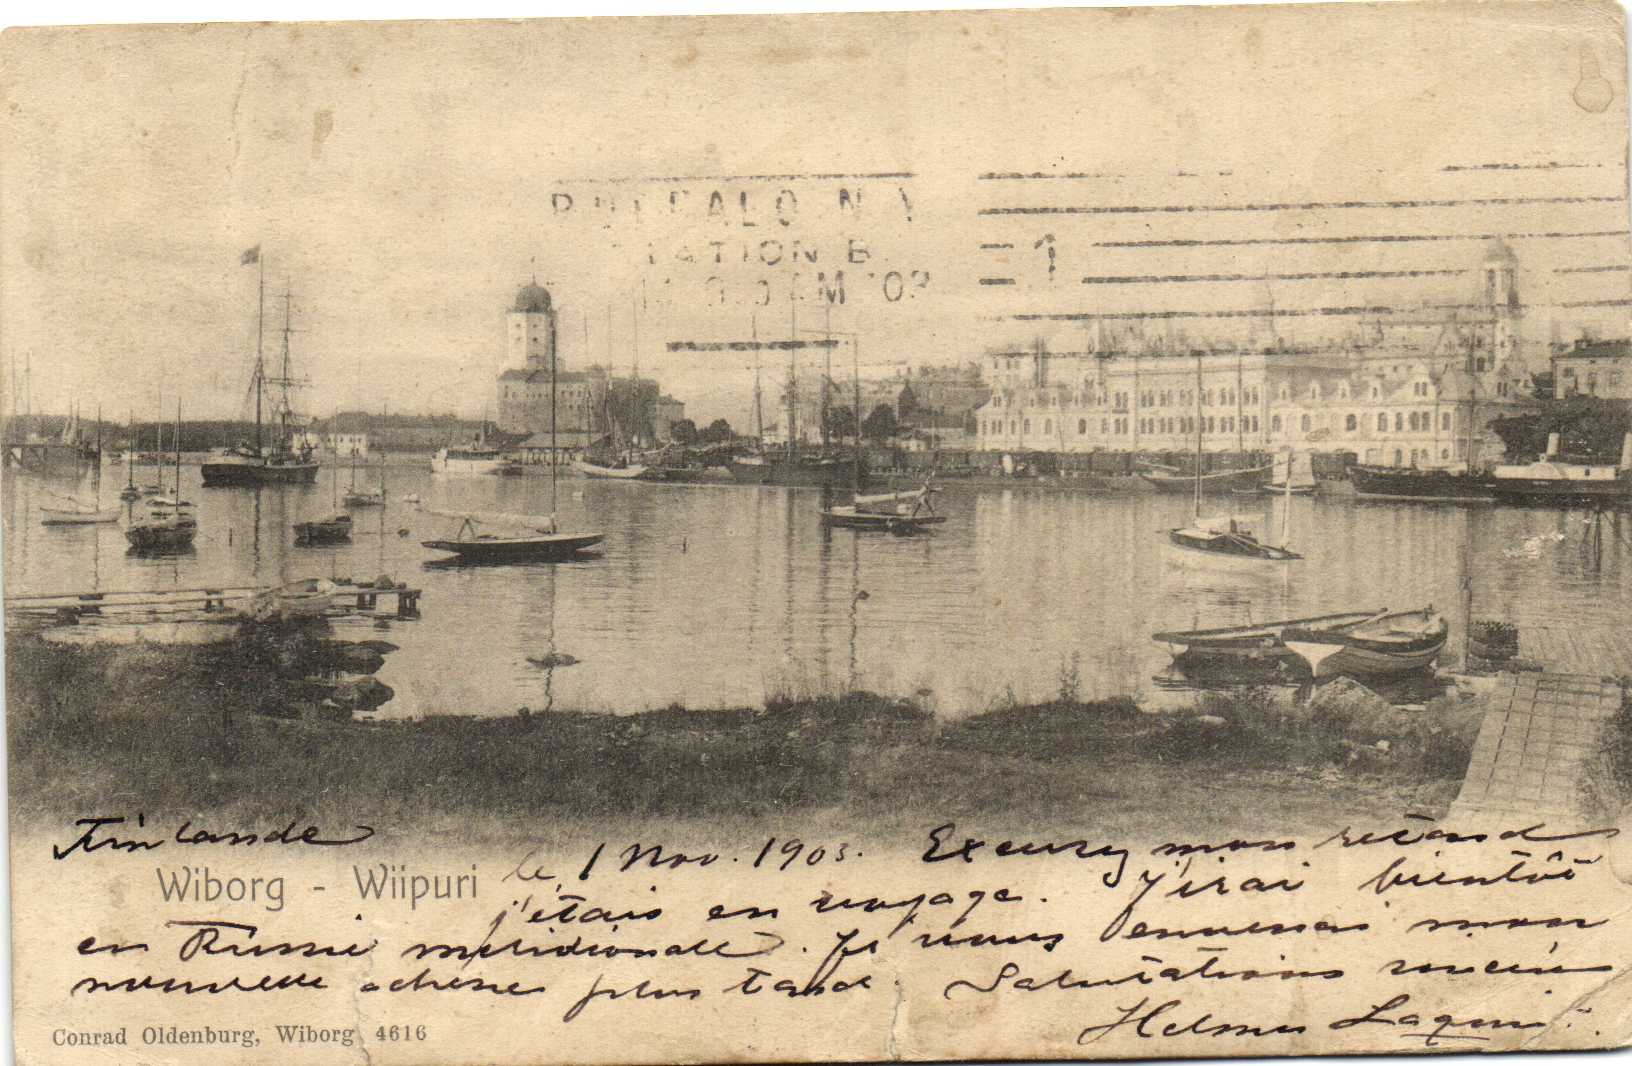 BUFFALO N.Y
STATION B.
AM '03
1
Finlande
Wiborg - Wiipuri
le 1 Nov. 1903. Excusez mon retard
j'étais en voyage. J'irai bientôt
en Russie méridionale. Je vous enverrai mon
nouvelle adresse plus tard. Salutations sincères
Conrad Oldenburg, Wiborg 4616